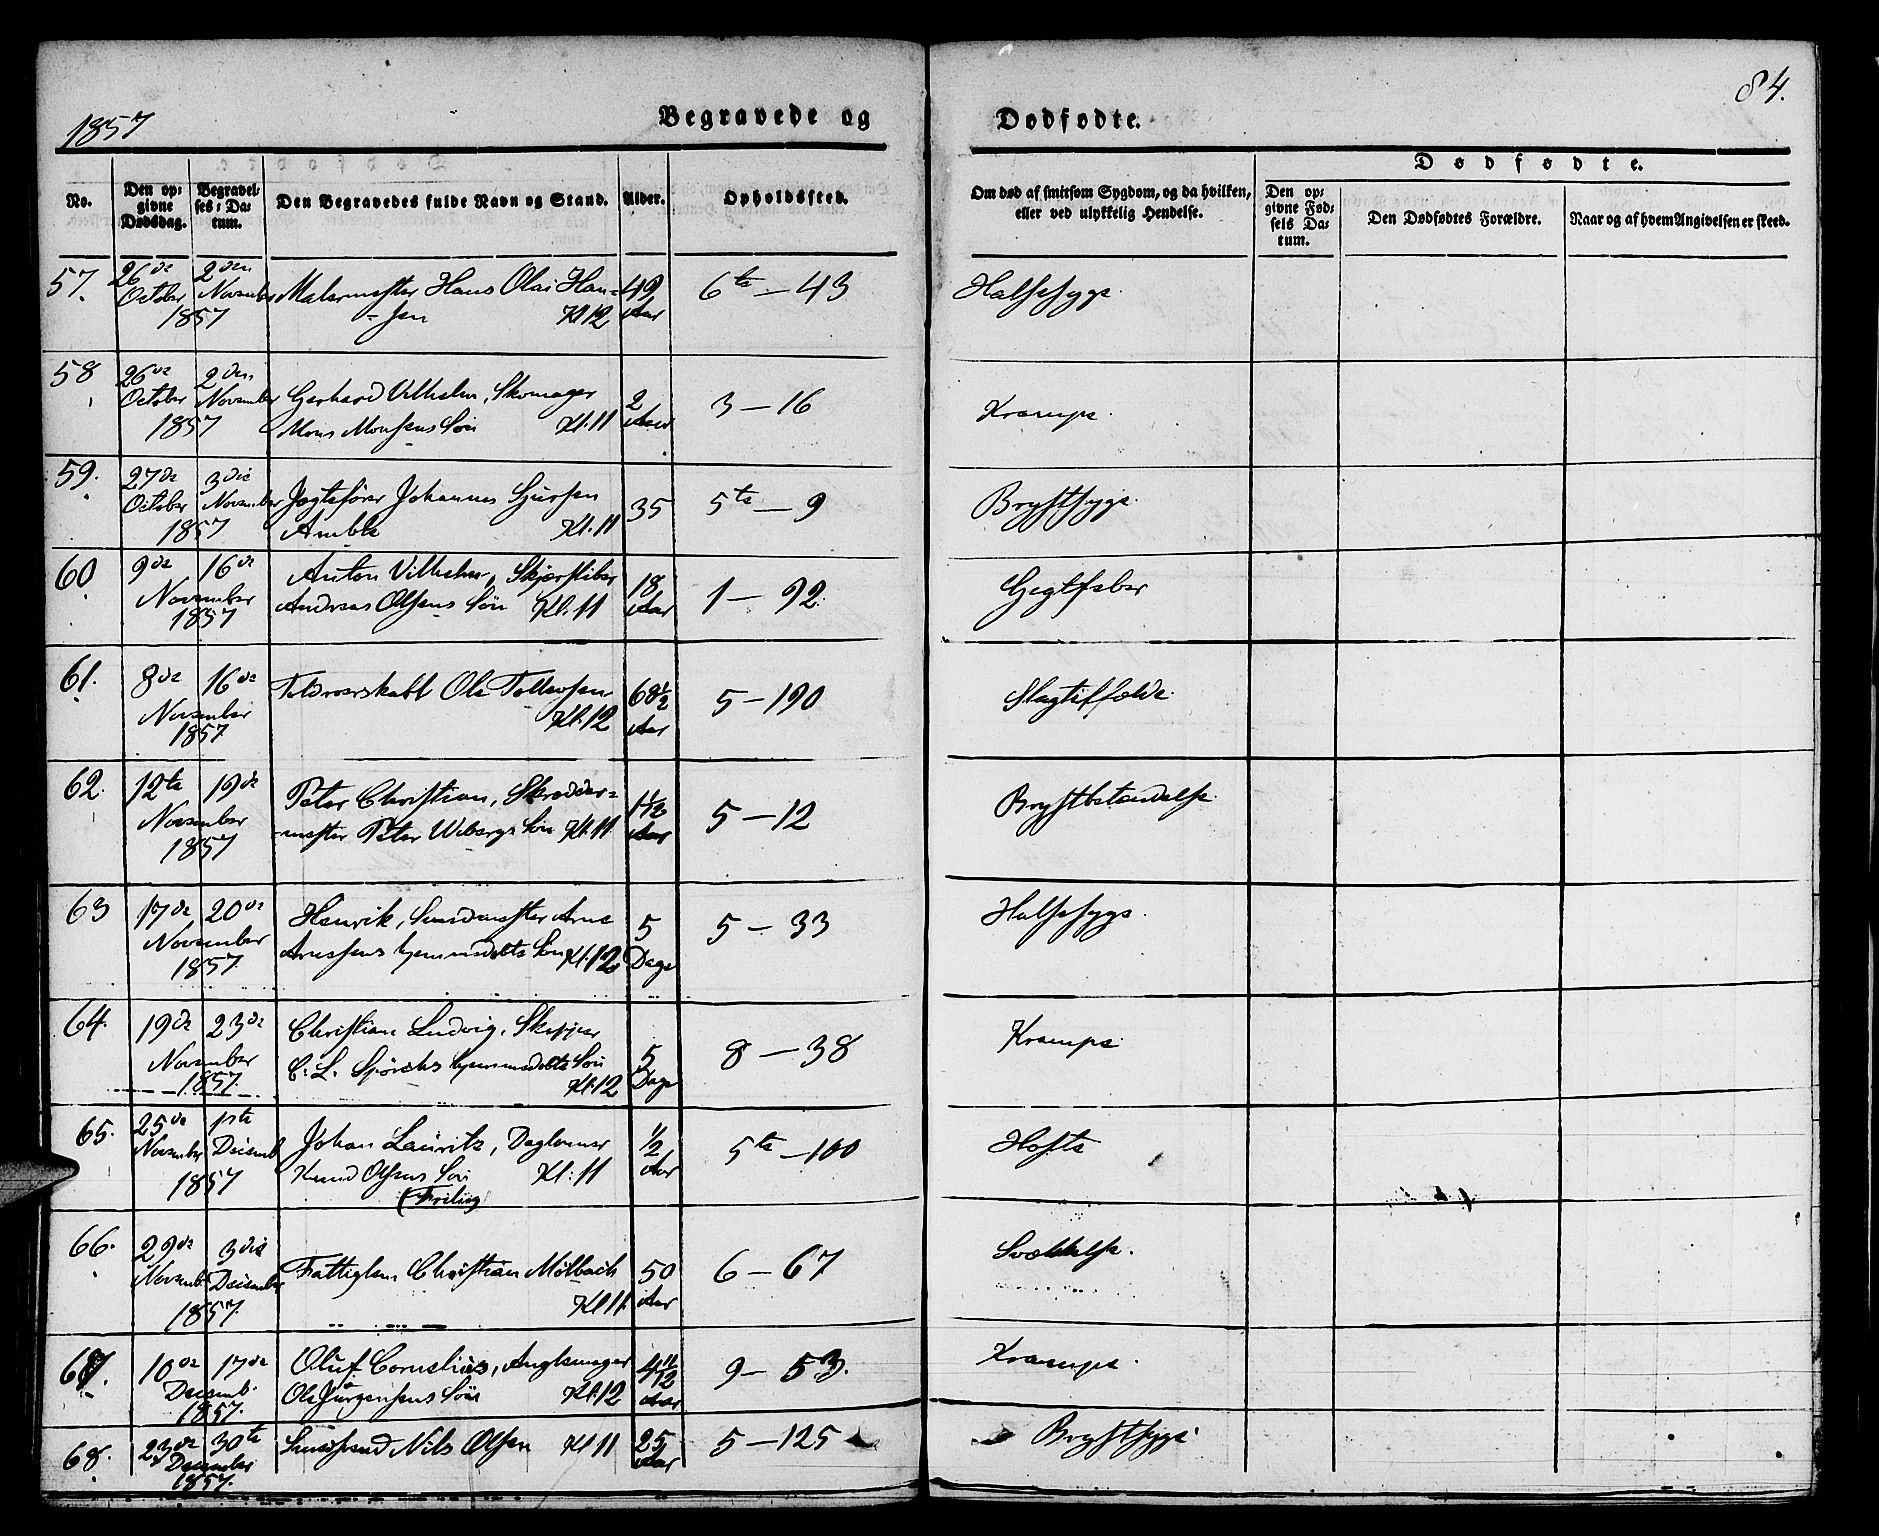 1857
Begravede og
Dødfødte.
84.
No.
Den opgivne Dødsdag.
Begravelses-Datum.
Den Begravedes fulde Navn og Stand.
Alder.
Opholdssted.
Om død af smitsom Sygdom, og da hvilken, eller ved ulykkelig Hendelse.
Dødfødte.
Den opgivne Fødsels Datum.
Den Dødfødtes Forældre.
Naar og af hvem Angivelsen er skeed.
57. 26de October 2den November 1857 Malermester Hans Olai Hansen Kl 12 49 Aar 6te — 43 Halsesyge.
58 26de October 2den November 1857 Gerhard Vilhelm, Skomager Mons Monsens Søn Kl. 11 2 Aar 3 — 16 Krampe.
59. 27de October 3die November 1857 Jegtefører Johannes Sjursen Amble Kl. 11 35 5te — 9 Brystsyge.
60 9de 16de November 1857 Anton Vilhelm, Andreas Olsens Søn Kl. 11 18 Aar 1 — 92. Gigtfeber
61. 8de 16de November 1857 Ole Tollevsen Kl. 12 68½ Aar 5 — 190 Slagtilfælde.
62. 12te 19de November 1857 Peter Christian, Skreddermester Peter Wibergs Søn Kl. 11 1½ Aar 5 — 12 Brystbetændelse.
63 17de 20de November 1857. Henrik, Smedmester Arne Arnesens hjemmedøbte Søn Kl. 12 5 Dage 5 — 33 Halsesyge.
64. 19de 23de November 1857. Christian Ludvig, Skipper C. L. hjemmedøbte Søn Kl. 12 5 Dage 8 — 38 Krampe.
65. 25de November 1ste Decemb 1857 Johan Lauritz, Daglønner Knud Olsens Søn Kl: 11 ½ Aar 5te — 100 Hoste
66. 29de Novemb. 3die December 1857. Fattiglem Christian Mølbach Kl 11. 50 Aar 6 — 67 Svækkelse.
67. 10de 17de Decemb. 1857. Oluf Cornelius, Anglemager Ole Jørgensens Søn Kl. 12 4 11/12 Aar 9 — 53. Krampe.
68. 23de 30te December 1857. Smedsvend Nils Olsen Kl 11 25 Aar 5 — 125 Brystsyge.